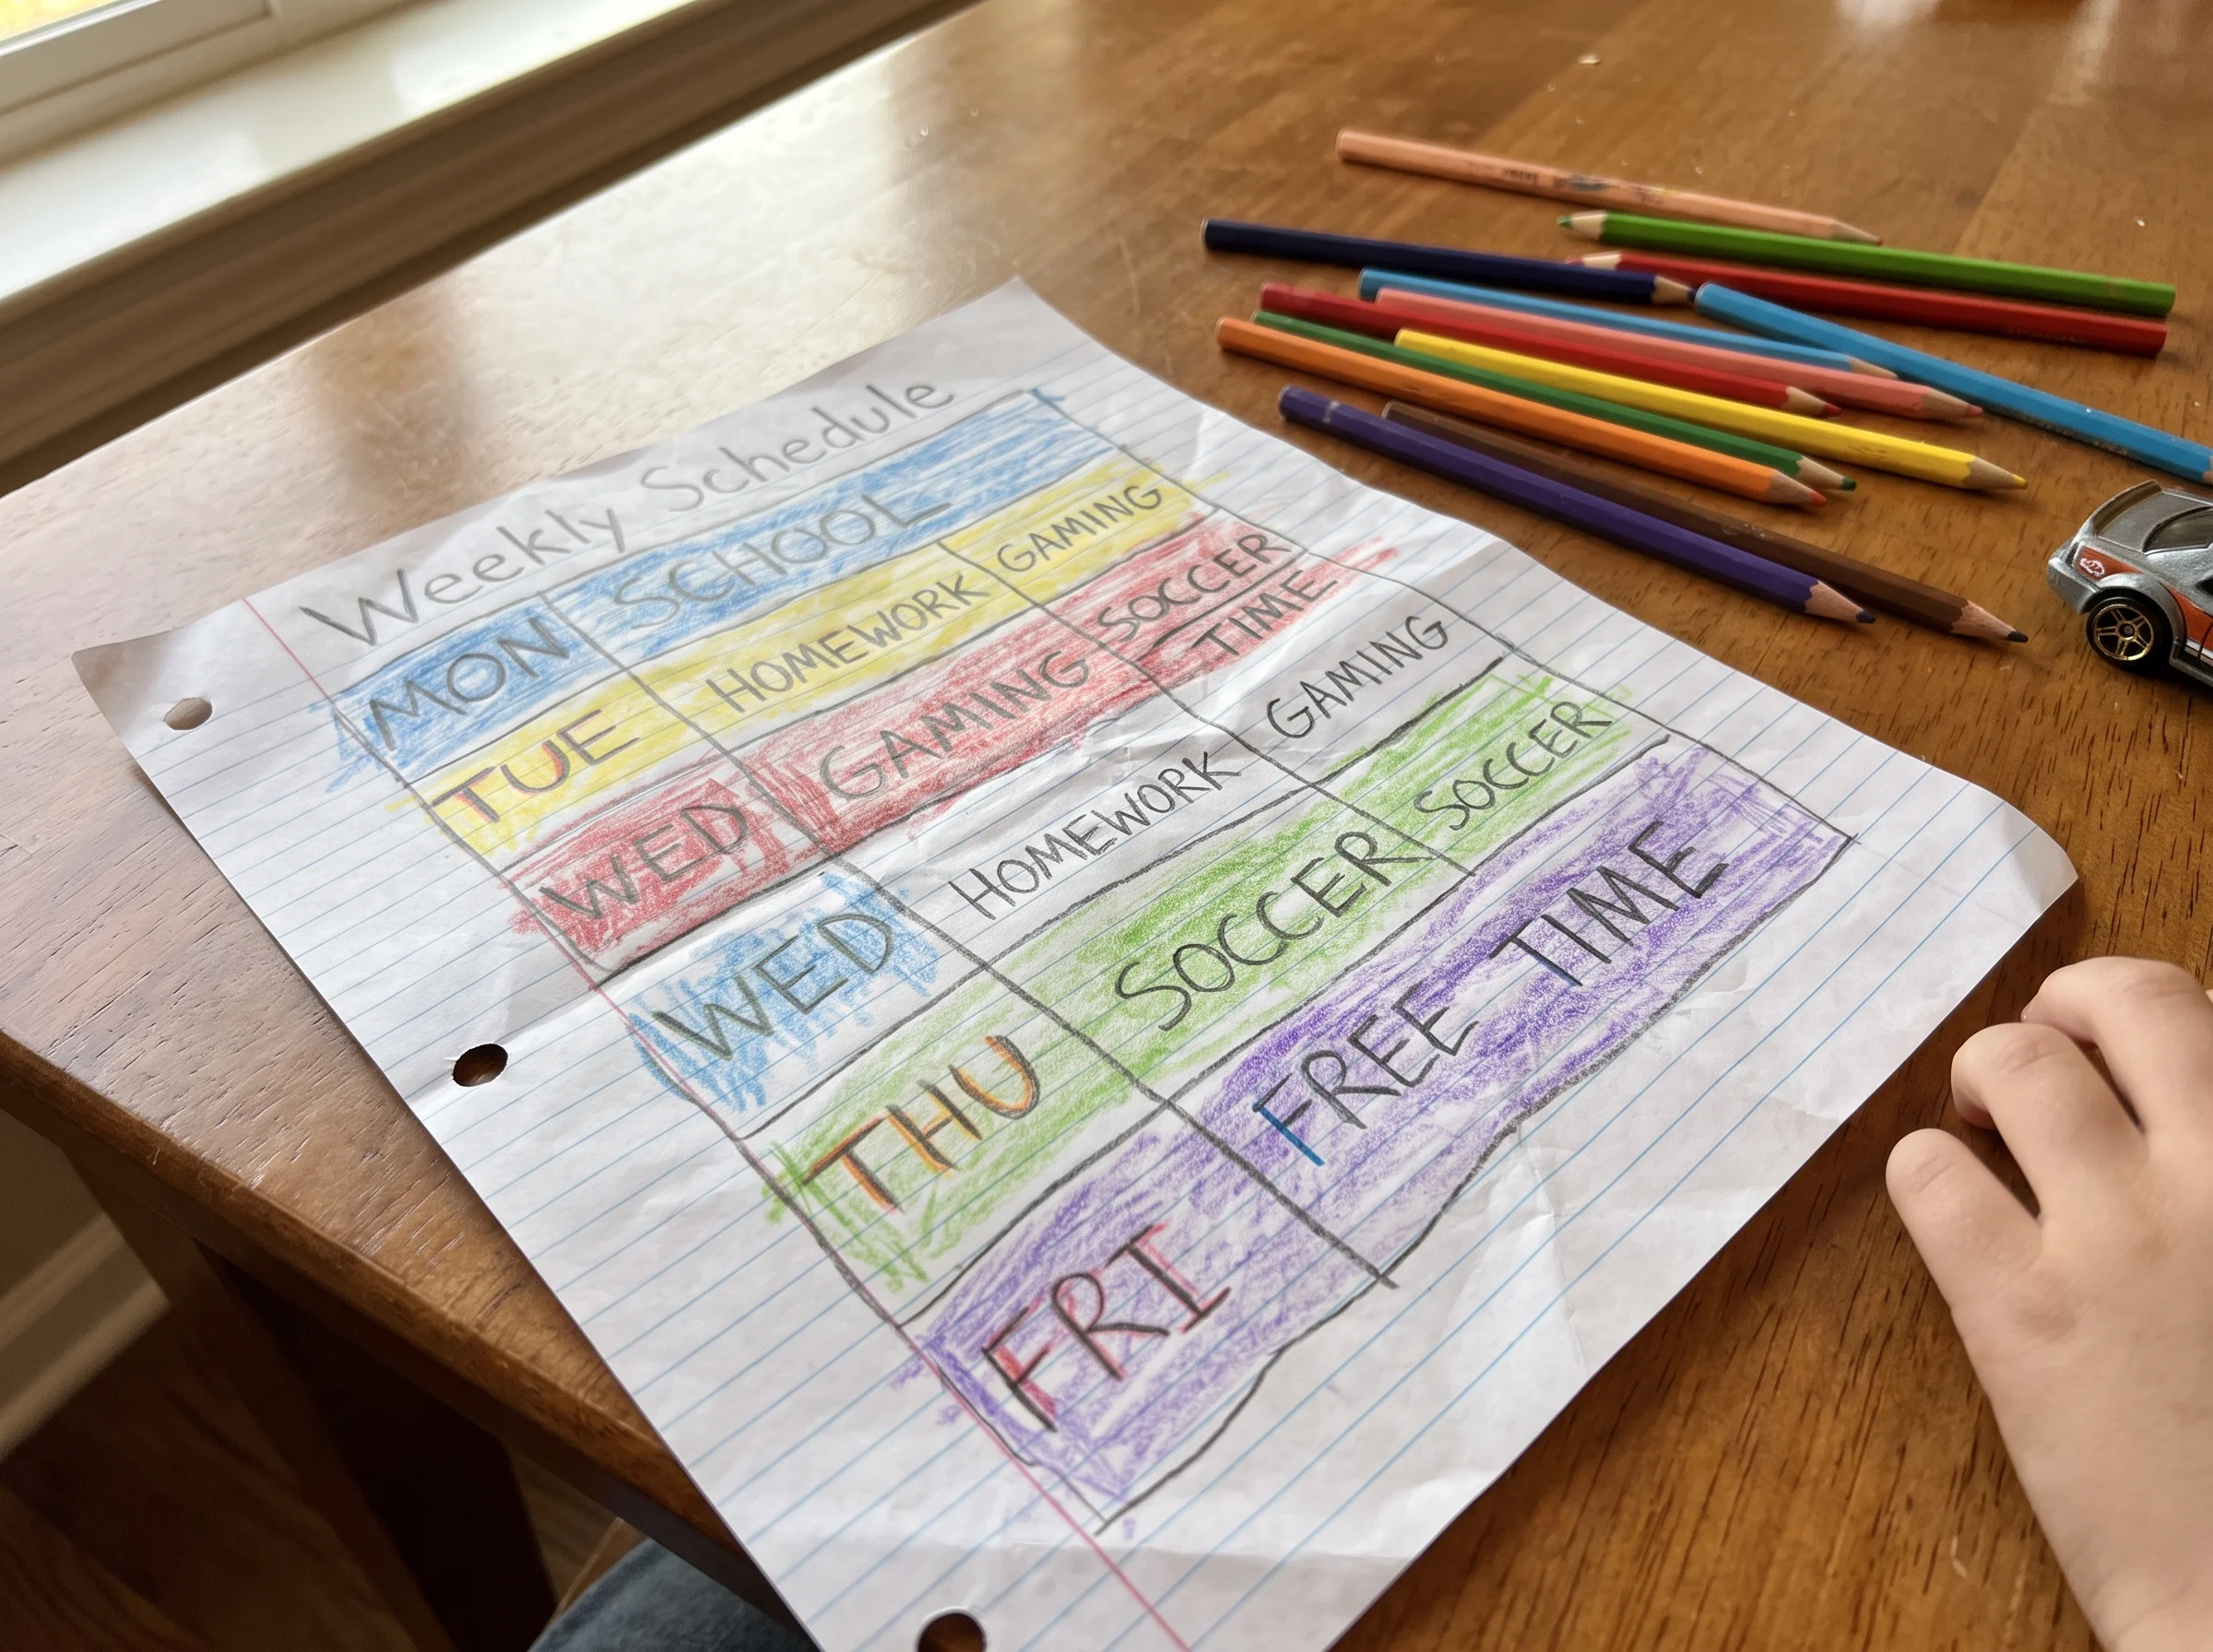 Weekly Schedule
MON SCHOOL
TUE HOMEWORK GAMING
WED GAMING SOCCER
TIME
WED HOMEWORK GAMING
THU SOCCER SOCCER
FRI FREE TIME